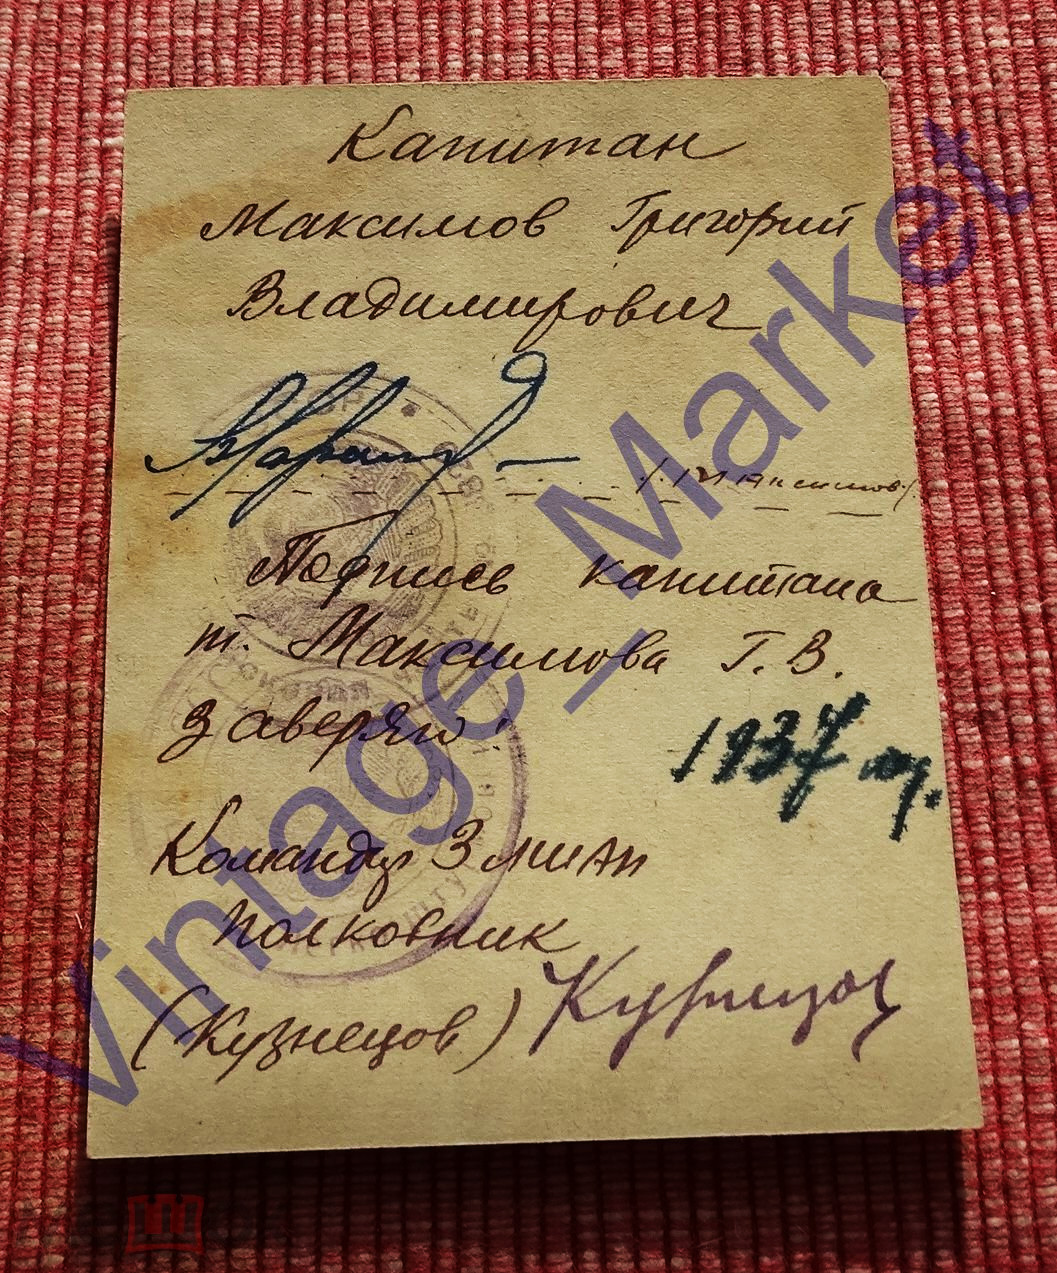 Капитан
Максимов Григорий
Владимирович
Подпись капитана
т. Максимова Г. В.
заверяю:
1937 год.
Командир 3
Полковник
(Кузнецов) Кузнецов
Vintage_Market